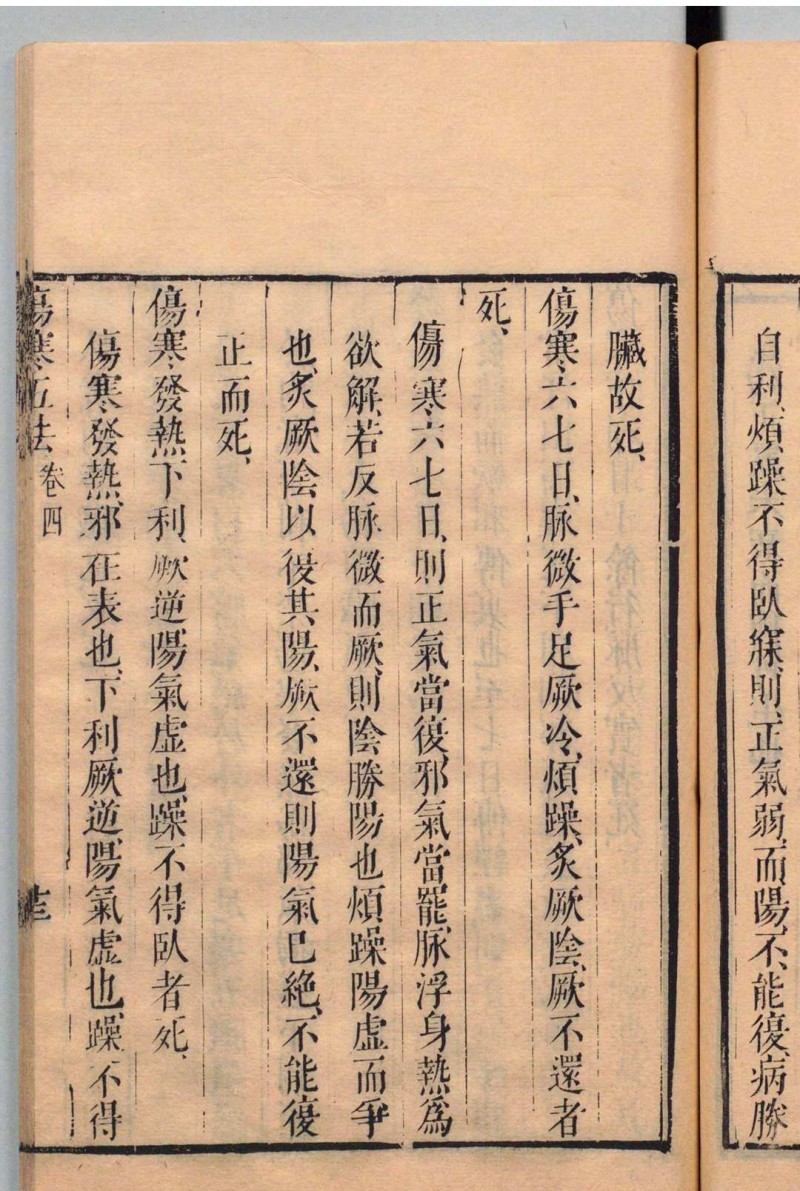 自利、煩躁不得臥寐、則正氣弱、而陽不能復、病勝
臟故死、
傷寒六七日、脉微手足厥冷、煩躁、炙厥陰、厥不還者
死、
傷寒六七日、則正氣當復、邪氣當罷、脉浮身熱爲
欲解、若反脉微而厥、則陰勝陽也煩躁陽虛而爭
也、炙厥陰以復其陽、厥不還則陽氣已絶、不能復
正而死、
傷寒發熱下利、厥逆陽氣虛也、躁不得臥者死、
傷寒發熱、邪在表也、下利厥逆、陽氣虛也、躁不得
傷寒五法 卷四